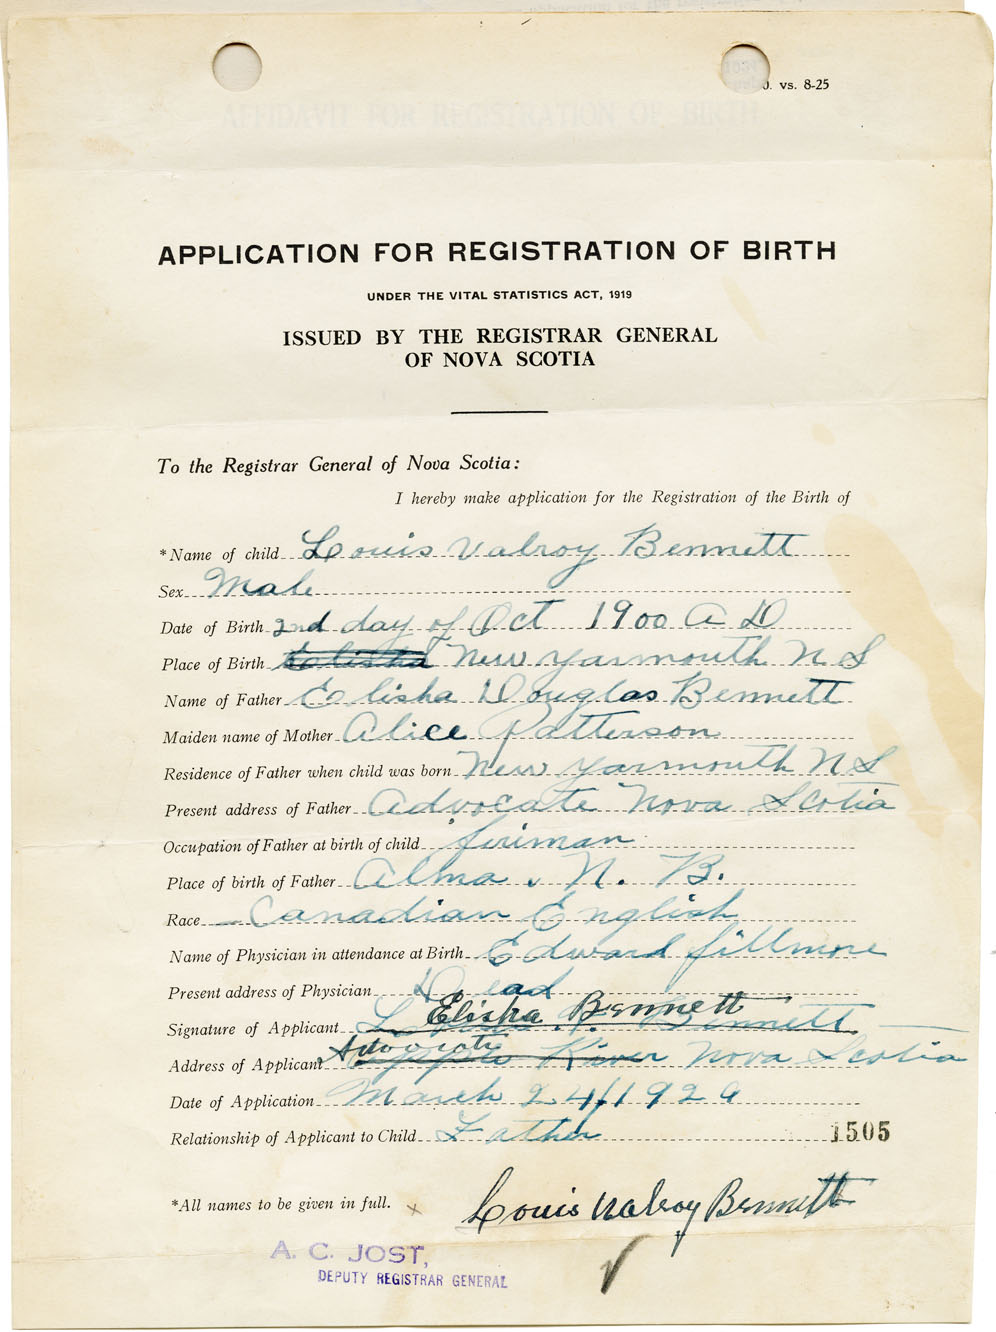 O. vs. 8-25
AFFIDAVIT FOR REGISTRATION OF BIRTH
APPLICATION FOR REGISTRATION OF BIRTH
UNDER THE VITAL STATISTICS ACT, 1919
ISSUED BY THE REGISTRAR GENERAL
OF NOVA SCOTIA
To the Registrar General of Nova Scotia:
I hereby make application for the Registration of the Birth of
*Name of child Louis Valroy Bennett
Sex Male
Date of Birth 2nd day of Oct 1900 A D
Place of Birth Elisha New Yarmouth N S
Name of Father Elisha Douglas Bennett
Maiden name of Mother Alice Patterson
Residence of Father when child was born New Yarmouth N S
Present address of Father Advocate Nova Scotia
Occupation of Father at birth of child firiman
Place of birth of Father Alma, N. B.
Race Canadian English
Name of Physician in attendance at Birth Edward fillmore
Present address of Physician Dead
Elisha Bennett
Signature of Applicant L Bennett
Advocate
Address of Applicant River Nova Scotia
Date of Application March 24/1929
Relationship of Applicant to Child Father 1505
*All names to be given in full. x Louis Valroy Bennett
A. C. JOST,
DEPUTY REGISTRAR GENERAL